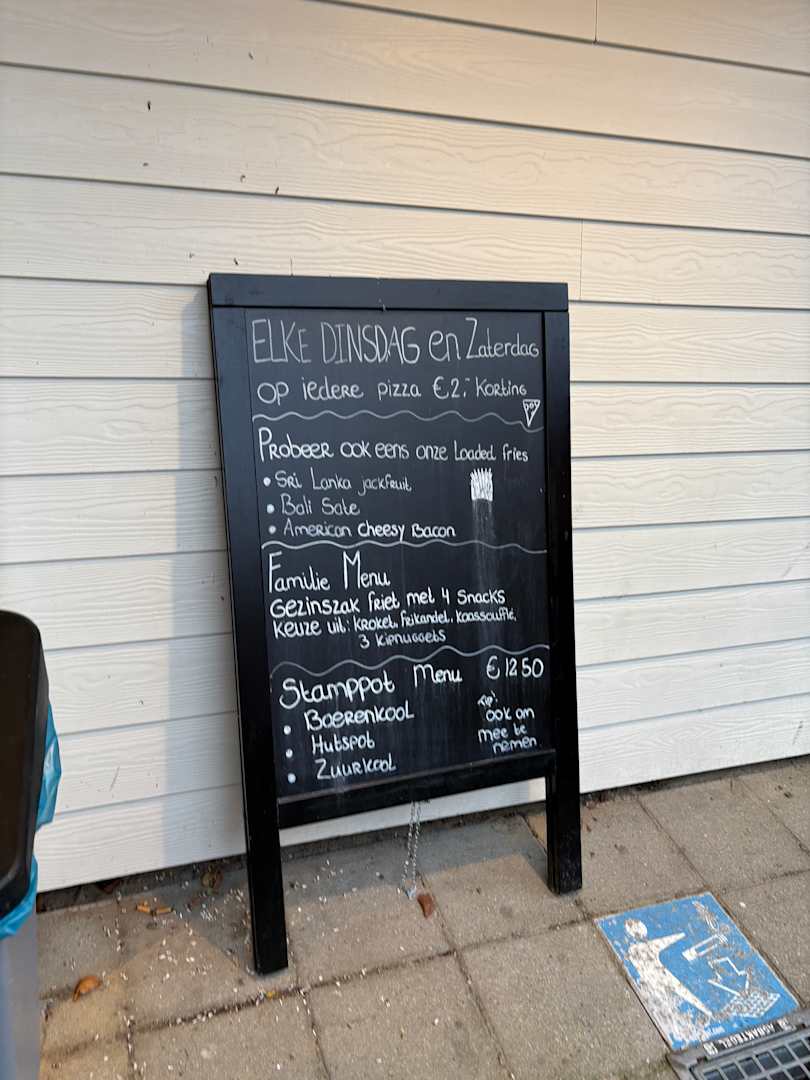 ELKE DINSDAG en Zaterdag
op iedere pizza €2,- Korting
Probeer ook eens onze Loaded fries
• Sri Lanka jackfruit
• Bali Sate
• American Cheesy Bacon
Familie Menu
Gezinszak friet met 4 Snacks
Keuze uit: Kroket, frikandel, Kaassoufflé,
3 kipnuggets
Stamppot Menu €12 50
• Boerenkool
• Hutspot
• Zuurkool
Tip!
ook om
mee te
nemen